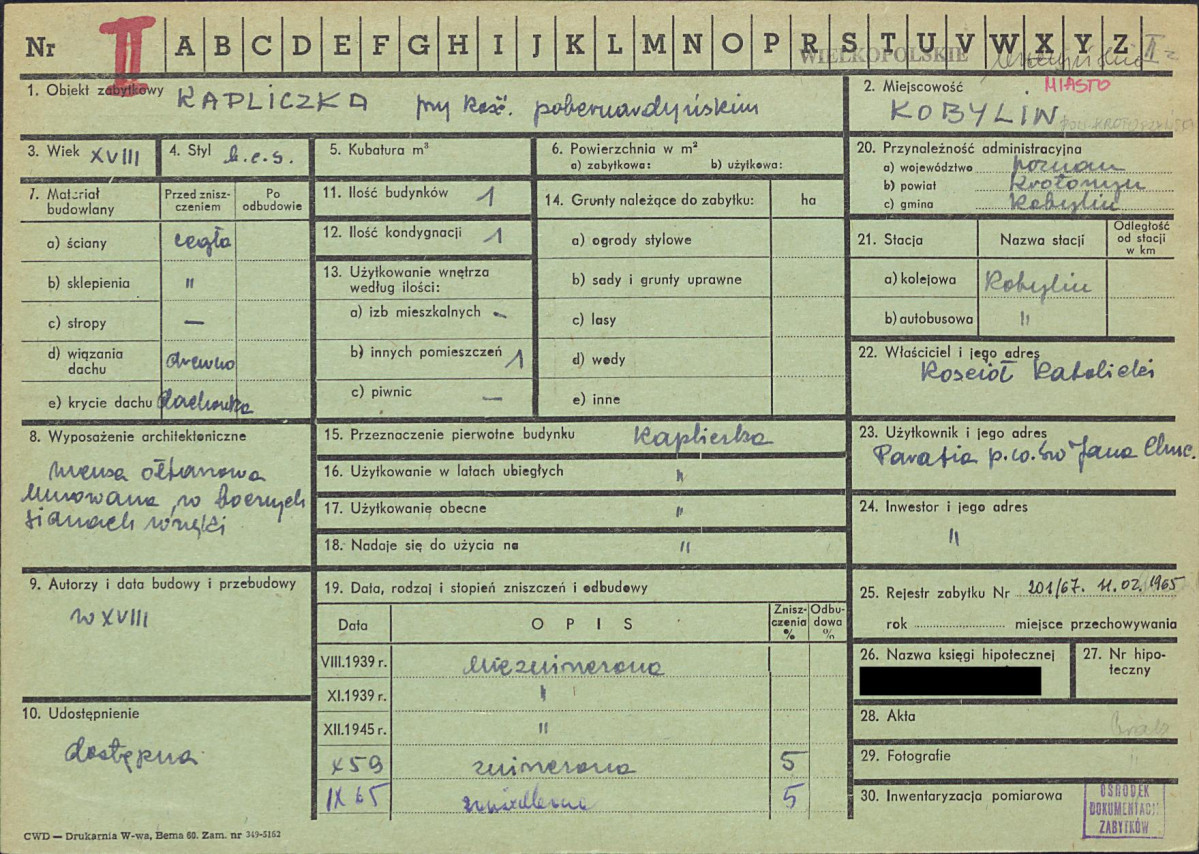 Nr II A B C D E F G H I J K L M N O P R S T U V W X Y Z II
WIELKOPOLSKIE
1. Obiekt zabytkowy KAPLICZKA przy kość. pobernardyńskim
2. Miejscowość MIASTO
KOBYLIN
3. Wiek XVIII
4. Styl b.c.s.
5. Kubatura m³
6. Powierzchnia w m²
a) zabytkowa: b) użytkowa:
20. Przynależność administracyjna
a) województwo poznań
b) powiat Krotoszyn
c) gmina Kobylin
7. Materiał budowlany
Przed zniszczeniem
Po odbudowie
a) ściany cegła
b) sklepienia "
c) stropy —
d) wiązania dachu drewno
e) krycie dachu dachówka
11. Ilość budynków 1
12. Ilość kondygnacji 1
13. Użytkowanie wnętrza
według ilości:
a) izb mieszkalnych -
b) innych pomieszczeń 1
c) piwnic —
14. Grunty należące do zabytku: ha
a) ogrody stylowe
b) sady i grunty uprawne
c) lasy
d) wody
e) inne
21. Stacja
Nazwa stacji
Odległość od stacji w km
a) kolejowa Kobylin
b) autobusowa "
22. Właściciel i jego adres
Kościół Katolicki
8. Wyposażenie architektoniczne
mensa ołtarzowa
murowana, w bocznych
ścianach wnęki
15. Przeznaczenie pierwotne budynku kapliczka
16. Użytkowanie w latach ubiegłych "
17. Użytkowanie obecne "
18. Nadaje się do użycia na "
23. Użytkownik i jego adres
Parafia p.w. św Jana Chrzc.
24. Inwestor i jego adres
"
9. Autorzy i data budowy i przebudowy
w XVIII
10. Udostępnienie
dostępna
19. Data, rodzaj i stopień zniszczeń i odbudowy
Data
O P I S
Zniszczenia %
Odbudowa %
VIII.1939 r. niezniszczona
XI.1939 r. "
XII.1945 r. "
X 59 zniszczona 5
IX 65 5
25. Rejestr zabytku Nr 201/67. 11.02.1965
rok miejsce przechowywania
26. Nazwa księgi hipotecznej
27. Nr hipoteczny
28. Akta
29. Fotografie "
30. Inwentaryzacja pomiarowa
OŚRODEK
DOKUMENTACJI
ZABYTKÓW
CWD — Drukarnia W-wa, Bema 60. Zam. nr 349-5162